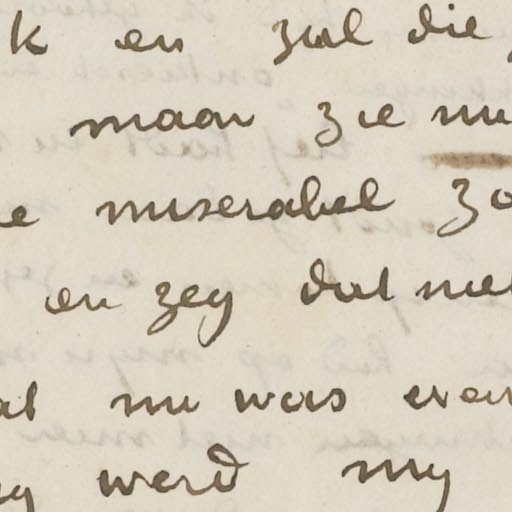 k en zal die
maar zie nu
e miserabel zo
en zeg dat niet
at nu was even
werd my